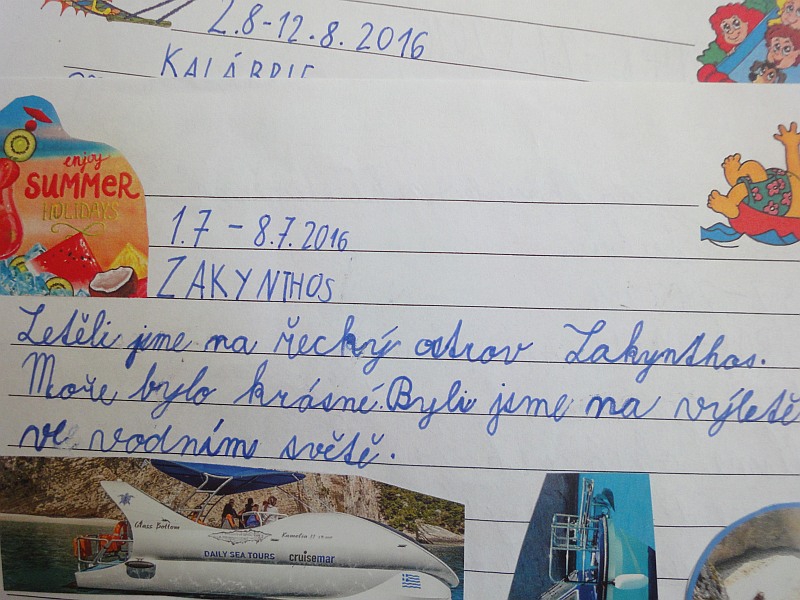 2.8-12.8. 2016
KALÁBRIE
enjoy
SUMMER
HOLIDAYS
1.7 - 8.7. 2016
ZAKYNTHOS
Letěli jsme na řecký ostrov Zakynthos.
Moře bylo krásné. Byli jsme na výletě
ve vodním světě.
Glass Bottom
DAILY SEA TOURS cruisemar